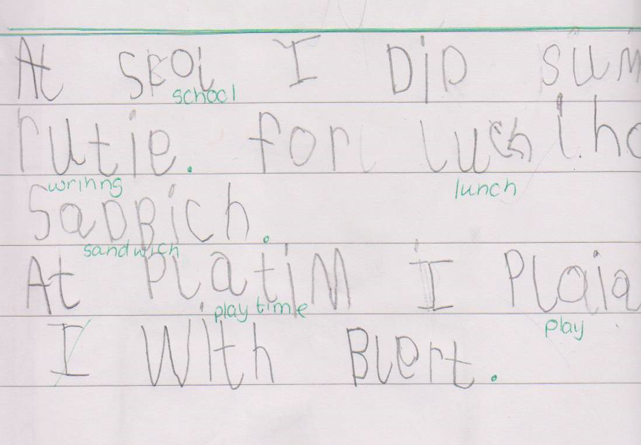 At Skol I Dip sum
school
rutie. For lush I ha
writing lunch
SaDBich.
sandwich
At PlatiM I Plaia
play time play
I With Blert.